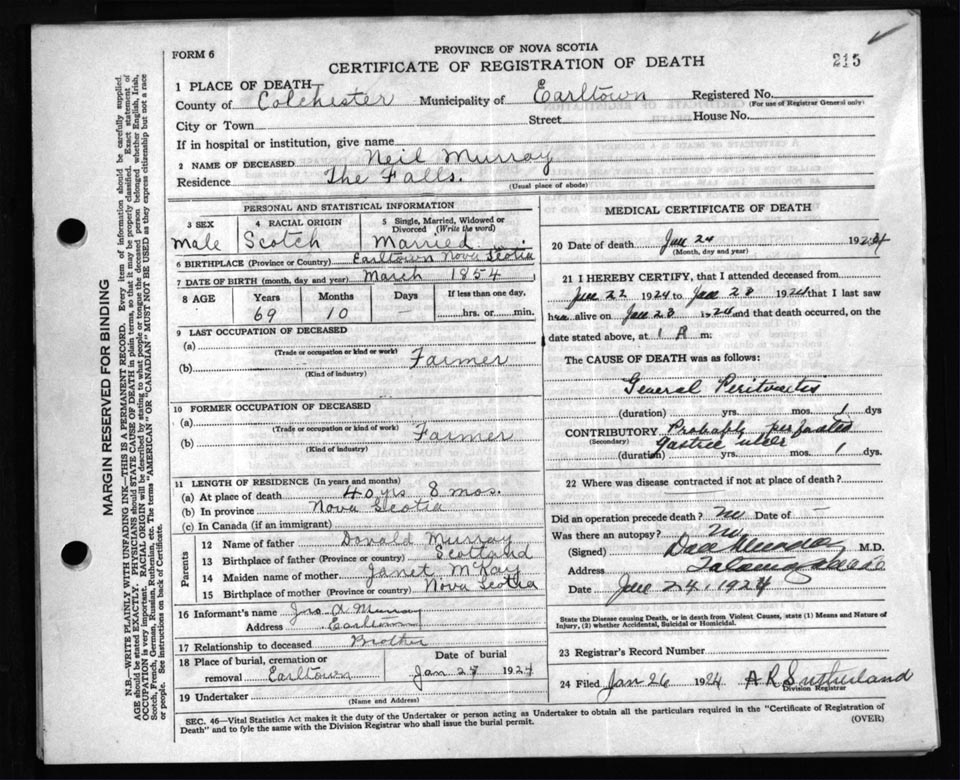 PROVINCE OF NOVA SCOTIA
FORM 6
CERTIFICATE OF REGISTRATION OF DEATH
215
1 PLACE OF DEATH
County of Colchester Municipality of Earltown Registered No.
(For use of Registrar General only)
City or Town Street House No.
If in hospital or institution, give name
2 NAME OF DECEASED Neil Murray
Residence The Falls.
(Usual place of abode)
PERSONAL AND STATISTICAL INFORMATION
3 SEX
Male
4 RACIAL ORIGIN
Scotch
5 Single, Married, Widowed or Divorced (Write the word)
Married
6 BIRTHPLACE (Province or Country) Earltown Nova Scotia
7 DATE OF BIRTH (month, day and year) March 1854
8 AGE Years Months Days If less than one day,
69 10 — hrs. or min.
9 LAST OCCUPATION OF DECEASED
(a)
(Trade or occupation or kind or work)
(b) Farmer
(Kind of industry)
10 FORMER OCCUPATION OF DECEASED
(a)
(Trade or occupation or kind of work)
(b) Farmer
(Kind of industry)
11 LENGTH OF RESIDENCE (In years and months)
(a) At place of death 40 yrs 8 mos.
(b) In province Nova Scotia
(c) In Canada (if an immigrant)
Parents
12 Name of father Donald Murray
13 Birthplace of father (Province or country) Scotland
14 Maiden name of mother Janet McKay
15 Birthplace of mother (Province or country) Nova Scotia
16 Informant's name Jno. A Murray
Address Earltown
17 Relationship to deceased Brother
18 Place of burial, cremation or removal Earltown
Date of burial
Jan 27 1924
19 Undertaker
(Name and Address)
MEDICAL CERTIFICATE OF DEATH
20 Date of death Jan 24 1924
(Month, day and year)
21 I HEREBY CERTIFY, that I attended deceased from
Jan 22 1924 to Jan 23 1924 that I last saw
him alive on Jan 23 1924 and that death occurred, on
date stated above, at 1 A m:
The CAUSE OF DEATH was as follows:
General Peritonitis
(duration) yrs. mos. 1 dys
CONTRIBUTORY Probably perforated
(Secondary) gastric ulcer
(duration) yrs. mos. 1 dys.
22 Where was disease contracted if not at place of death?
Did an operation precede death? no Date of —
Was there an autopsy? no
(Signed) Murray M.D.
Address
Date Jan 24, 1924
State the Disease causing Death, or in death from Violent Causes, state (1) Means and Nature of
Injury, (2) whether Accidental, Suicidal or Homicidal.
23 Registrar's Record Number
24 Filed Jan 26 1924 A R Sutherland
Division Registrar
SEC. 46—Vital Statistics Act makes it the duty of the Undertaker or person acting as Undertaker to obtain all the particulars required in the "Certificate of Registration of
Death" and to fyle the same with the Division Registrar who shall issue the burial permit.
(OVER)
MARGIN RESERVED FOR BINDING
N.B.—WRITE PLAINLY WITH UNFADING INK—THIS IS A PERMANENT RECORD. Every item of information should be carefully supplied.
AGE should be stated EXACTLY. PHYSICIANS should STATE CAUSE OF DEATH in plain terms, so that it may be properly classified. Exact statement of
OCCUPATION is very important. RACIAL ORIGIN will be described by stating to what people or tongue the deceased person belonged whether English, Irish,
Scotch, French, German, Russian, Ruthenian, etc. The terms "AMERICAN" OR "CANADIAN" MUST NOT BE USED as they express citizenship but not a race
See instructions on back of Certificate.